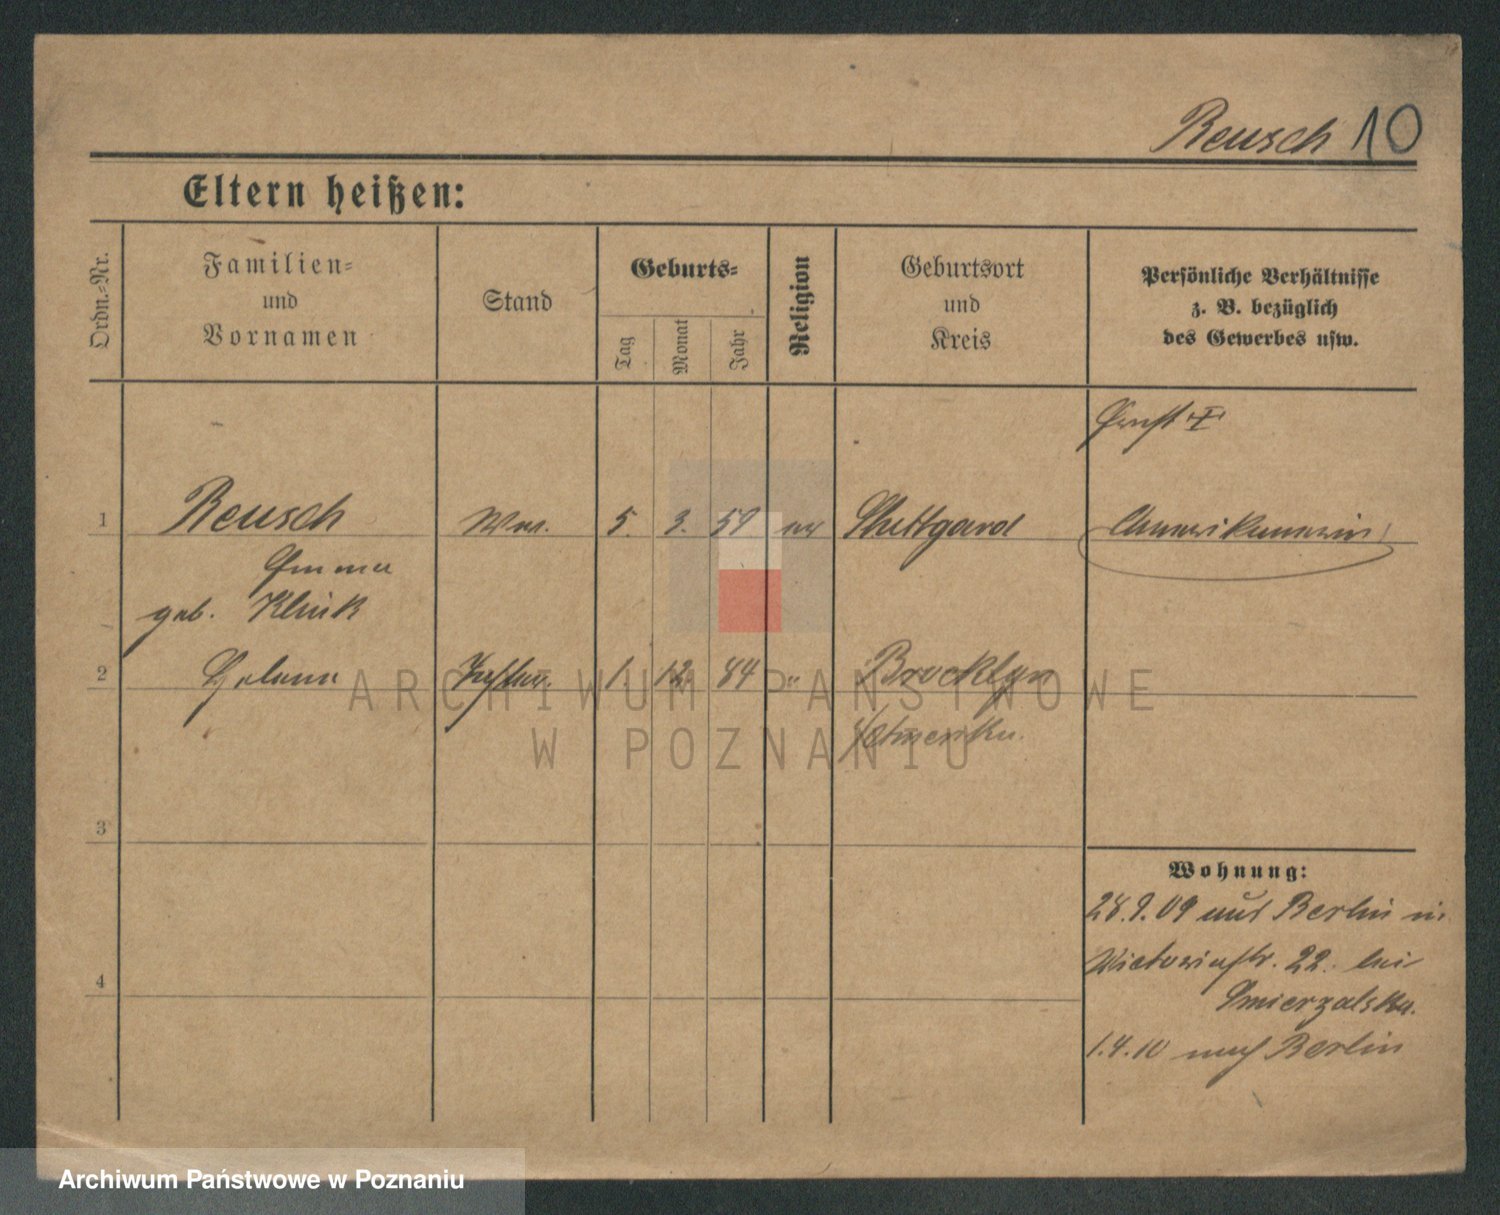 Reusch 10
Eltern heißen:
Ordn.-Nr.
Familien-
und
Vornamen
Stand
Geburts-
Tag
Monat
Jahr
Religion
Geburtsort
und
Kreis
Persönliche Verhältnisse
z. B. bezüglich
des Gewerbes usw.
Ernst
1 Reusch 5. 3. 59 ev Stuttgard Amerikanerin
Emma
geb. Klink
2 Helene 1. 12. 84 " Brocklyn
Amerika.
3
4
Wohnung:
28.9.09 aus Berlin in
Victoriastr. 22. bei
Smierzalska.
1.4.10 nach Berlin
ARCHIWUM PAŃSTWOWE
W POZNANIU
Archiwum Państwowe w Poznaniu